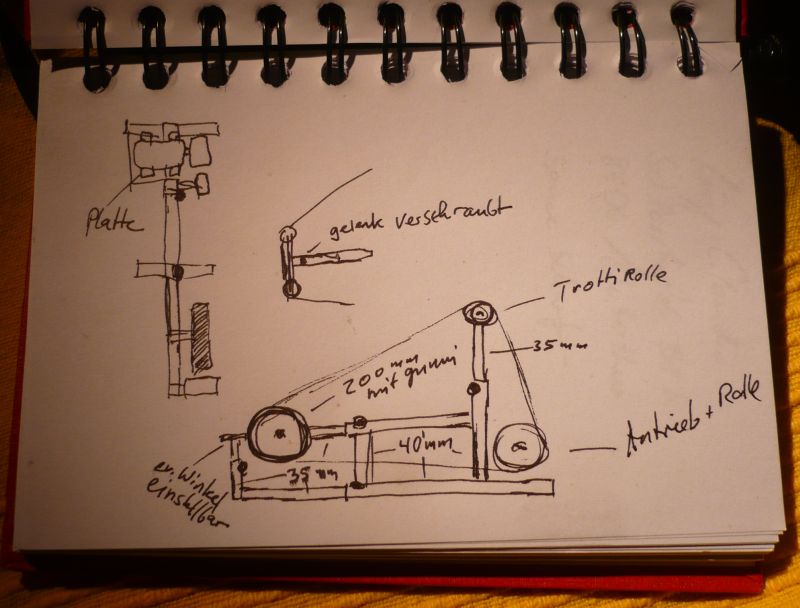 Platte
gelenk verschraubt
Trotti Rolle
35mm
200mm
mit gummi
Antrieb + Rolle
40mm
35mm
ev. Winkel
einstellbar